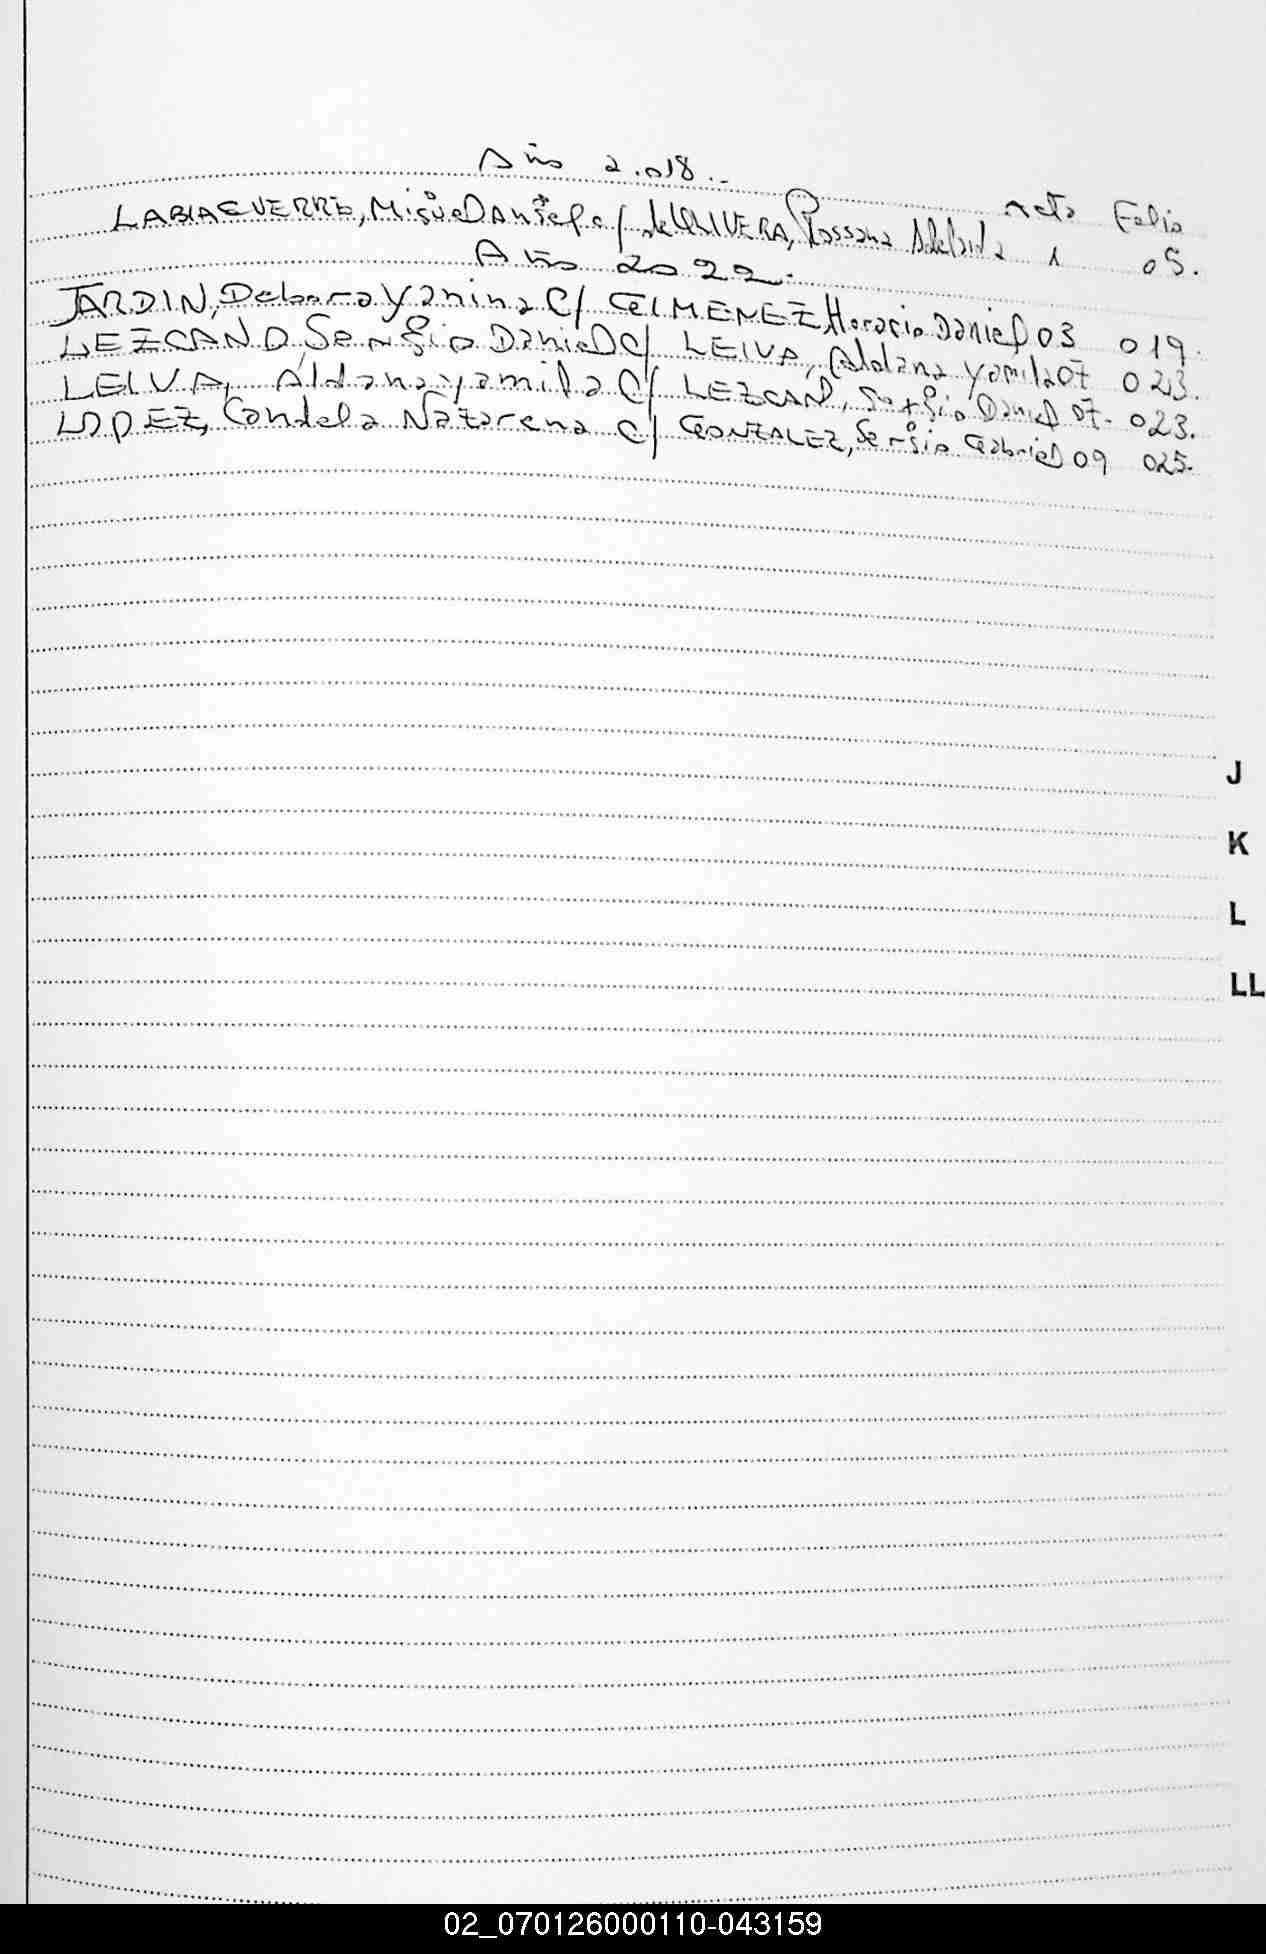 Año 2.018..
Acta Folio
LABIAGUERRE, Miguel Daniel c/ de OLIVERA, Rossana Adelaida 1 05.
Año 2022.
JARDIN, Debora Yanina C/ GIMENEZ, Horacio Daniel 03 019.
LEZCANO, Sergio Daniel C/ LEIVA, Aldana Yamila 07 023.
LEIVA, Aldana Yamila C/ LEZCANO, Sergio Daniel 07. 023.
LOPEZ, Candela Nazarena c/ GONZALEZ, Sergio Gabriel 09 025.
J
K
L
LL
02_070126000110-043159